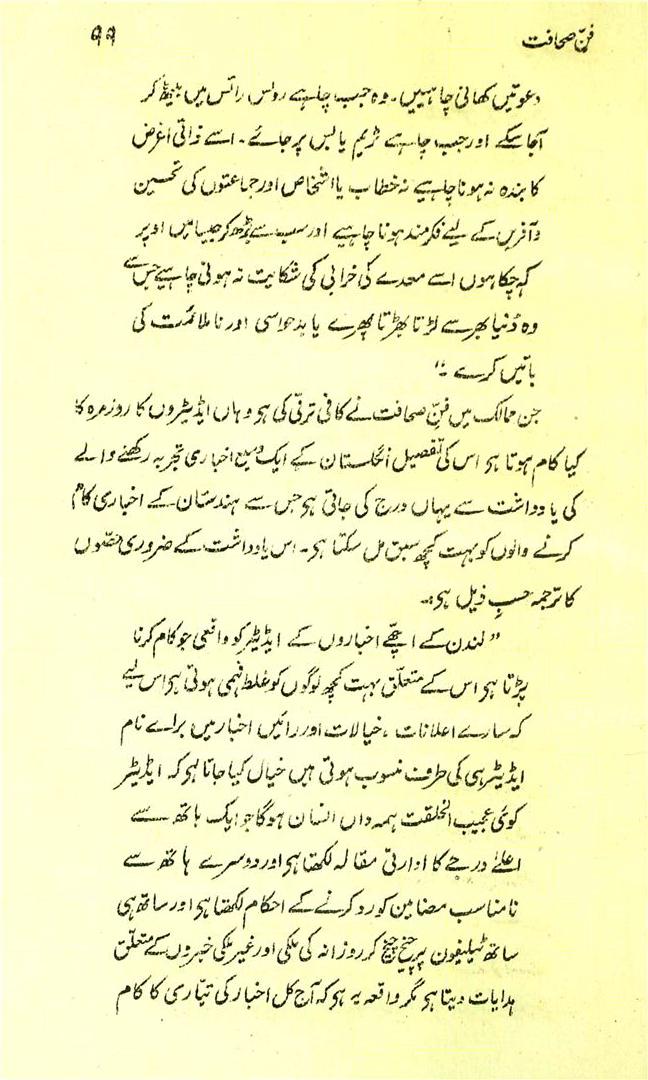 فنِّ صحافت ۹۹
دعوتیں کھانی چاہییں۔ وہ جب چاہے رولس رائس میں بیٹھ کر
آجاسکے اور جب چاہے ٹریم یا بس پر جائے۔ اسے ذاتی اغرض
کا بندہ نہ ہونا چاہیے نہ خطاب یا اشخاص اور جماعتوں کی تحسین
و آفریں کے لیے فکرمند ہونا چاہیے اور سب سے بڑھ کر جیسا میں اوپر
کہہ چکا ہوں اسے معدے کی خرابی کی شکایت نہ ہونی چاہیے جس سے
وہ دُنیا بھر سے لڑتا بھڑتا پھرے یا بدحواسی اور ناملائمت کی
باتیں کرے ۔"
جن ممالک میں فنِّ صحافت نے کافی ترقی کی ہر وہاں ایڈیٹروں کا روزمرہ کا
کیا کام ہوتا ہر اس کی تفصیل انگلستان کے ایک وسیع اخباری تجربہ رکھنے والے
کی یادداشت سے یہاں درج کی جاتی ہر جس سے ہندستان کے اخباری کام
کرنے والوں کو بہت کچھ سبق مل سکتا ہر۔ اس یادداشت کے ضروری حصّوں
کا ترجمہ حسبِ ذیل ہر:۔
"لندن کے اچھّے اخباروں کے ایڈیٹر کو واقعی جو کام کرنا
پڑتا ہر اس کے متعلّق بہت کچھ لوگوں کو غلط فہمی ہوتی ہر اس لیے
کہ سارے اعلانات، خیالات اور رائیں اخبار میں براے نام
ایڈیٹر ہی کی طرف منسوب ہوتی ہیں خیال کیا جاتا ہر کہ ایڈیٹر
کوئی عجیب الخلقت ہمہ داں انسان ہوگا جو ایک ہاتھ سے
اعلےٰ درجے کا ادارتی مقالہ لکھتا ہر اور دوسرے ہاتھ سے
نامناسب مضامین کو رد کرنے کے احکام لکھتا ہر اور ساتھ ہی
ساتھ ٹیلیفون پر چیخ چیخ کر روزانہ کی ملکی اور غیر ملکی خبروں کے متعلّق
ہدایات دیتا ہر مگر واقعہ یہ ہر کہ آج کل اخبار کی تیّاری کا کام